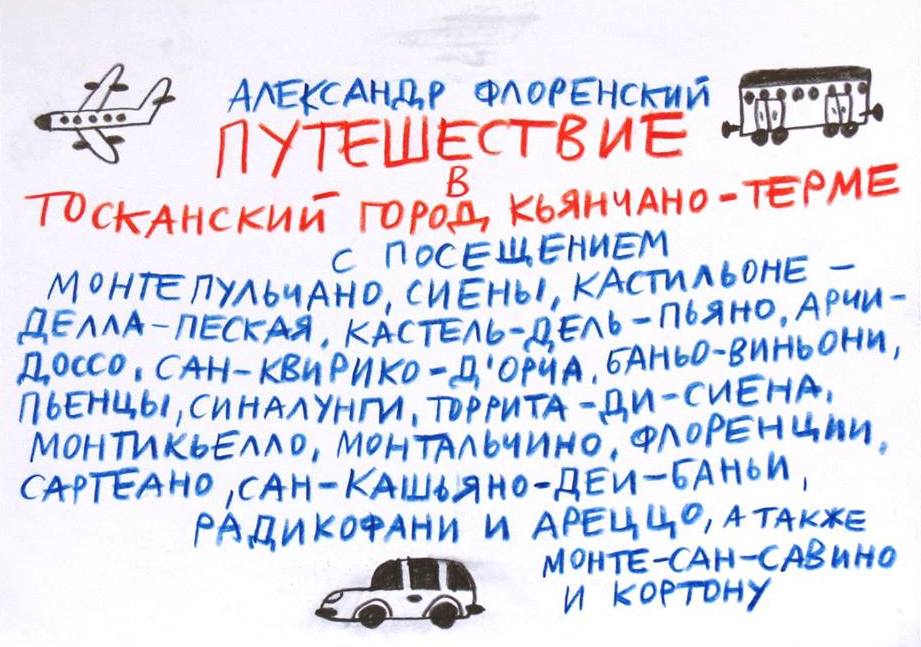 АЛЕКСАНДР ФЛОРЕНСКИЙ
ПУТЕШЕСТВИЕ
В
ТОСКАНСКИЙ ГОРОД КЬЯНЧАНО-ТЕРМЕ
С ПОСЕЩЕНИЕМ
МОНТЕПУЛЬЧАНО, СИЕНЫ, КАСТИЛЬОНЕ-
ДЕЛЛА-ПЕСКАЯ, КАСТЕЛЬ-ДЕЛЬ-ПЬЯНО, АРЧИ-
ДОССО, САН-КВИРИКО-Д'ОРЧА, БАНЬО-ВИНЬОНИ,
ПЬЕНЦЫ, СИНАЛУНГИ, ТОРРИТА-ДИ-СИЕНА,
МОНТИКЬЕЛЛО, МОНТАЛЬЧИНО, ФЛОРЕНЦИИ,
САРТЕАНО, САН-КАШЬЯНО-ДЕИ-БАНЬИ,
РАДИКОФАНИ И АРЕЦЦО, А ТАКЖЕ
МОНТЕ-САН-САВИНО
И КОРТОНУ